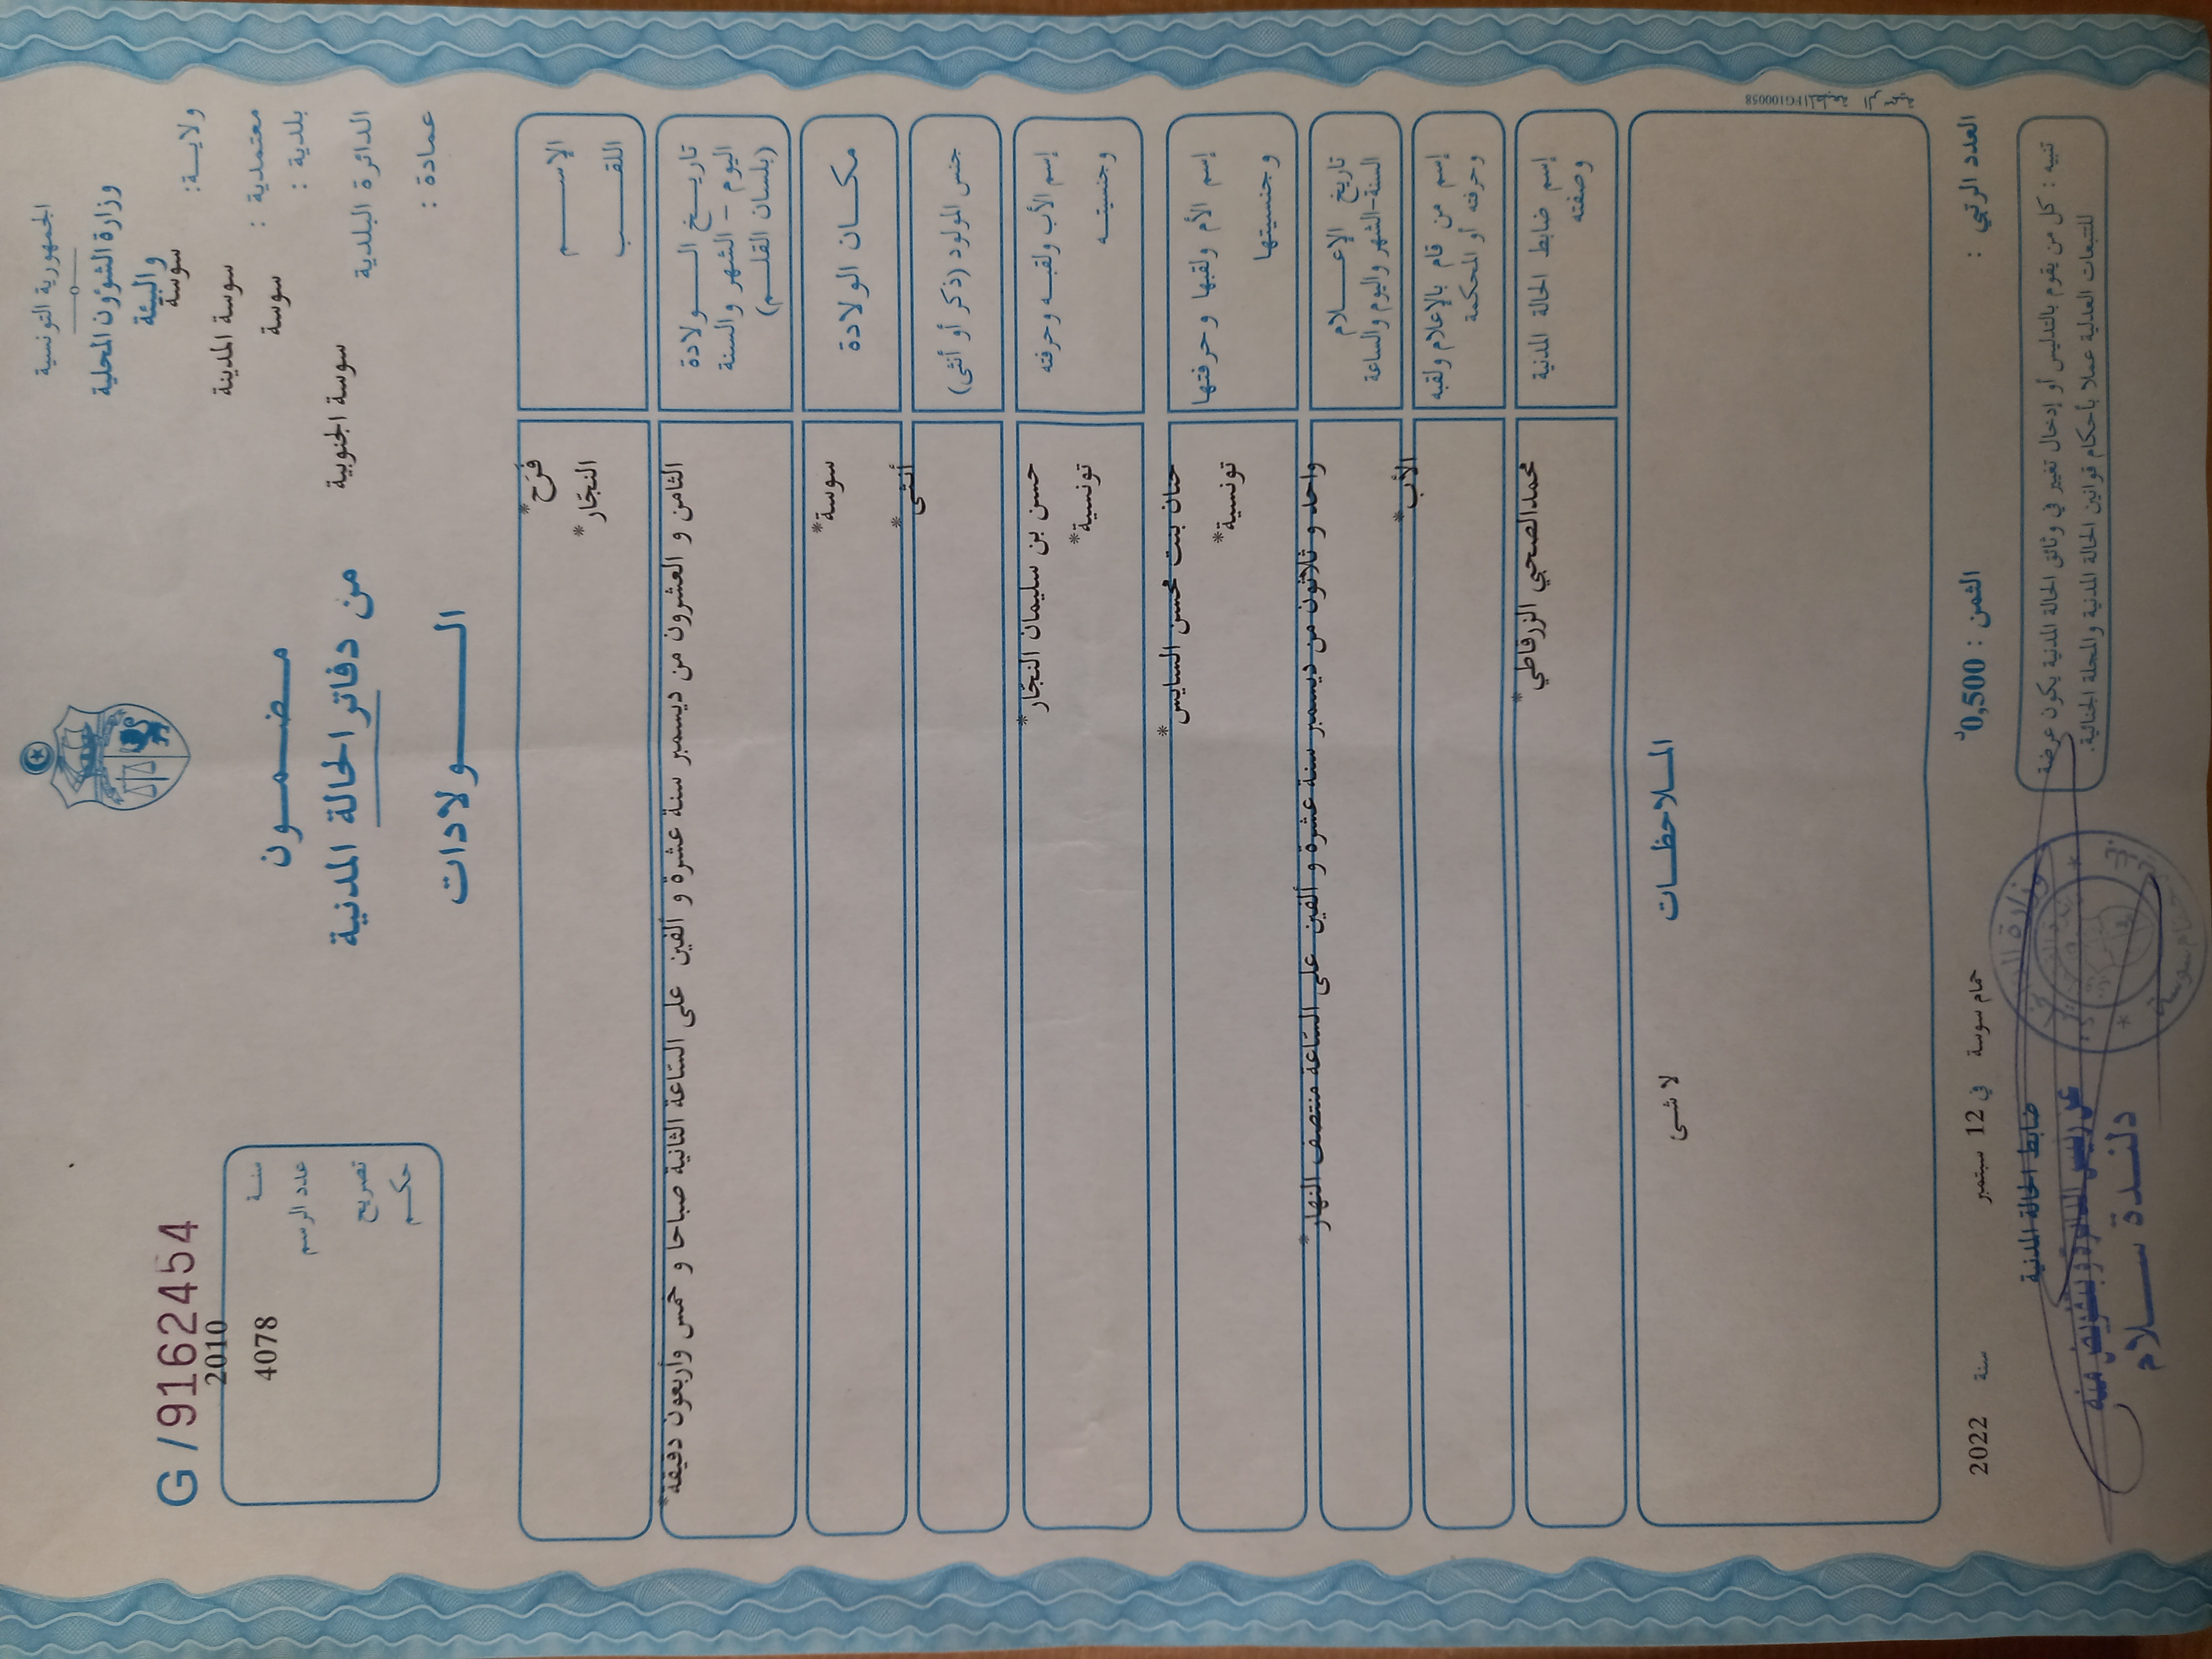 الجمهورية التونسية
وزارة الشؤون المحلية
والبيئة
ولايــة: سوسة
معتمدية : سوسة المدينة
بلدية : سوسة
الدائرة البلدية سوسة الجنوبية
عمادة :
مـضـمـون
من دفاتر الحالة المدنية
الــولادات
G/9162454
سنـة 2010
عدد الرسم 4078
تصريح
حكـم
الإســـم فَرَح*
اللقـــب النجّار*
تاريــخ الــولادة
اليوم – الشهر والسنة
(بلسان القلـم)
الثامن و العشرون من ديسمبر سنة عشرة و ألفين على السّاعة الثانية صباحا و خمس وأربعون دقيقة*
مكــان الولادة سوسة*
جنس المولود (ذكر أو أنثى) أنثى*
إسم الأب ولقبـه وحرفته
وجنسيتــه
حسن بن سليمان النجّار*
تونسية*
إسم الأم ولقبها وحرفتها
وجنسيتها
حنان بنت محسن السايس*
تونسية*
تاريخ الإعـــلام
السنة-الشهر واليوم والساعة
واحد و ثلاثون من ديسمبر سنة عشرة و ألفين على السّاعة منتصف النهار*
إسم من قام بالإعلام ولقبه
وحرفته أو المحكمة
الأب*
إسم ضابط الحالة المدنية
وصفته
محمدالصحبي الزرقاطي*
الملاحظـات
لا شى
1FG100058
العدد الرتبي :
الثمن : 0,500د
حمام سوسة في 12 سبتمبر سنة 2022
تنبيه : كل من يقوم بالتدليس أو إدخال تغيير في وثائق الحالة المدنية يكون عرضة
للتتبعات العدلية عملا بأحكام قوانين الحالة المدنية والمجلة الجنائية.
ضابط الحالة المدنية
عن رئيس الدائرة وبتفويض منه
دلنـدة ســلام